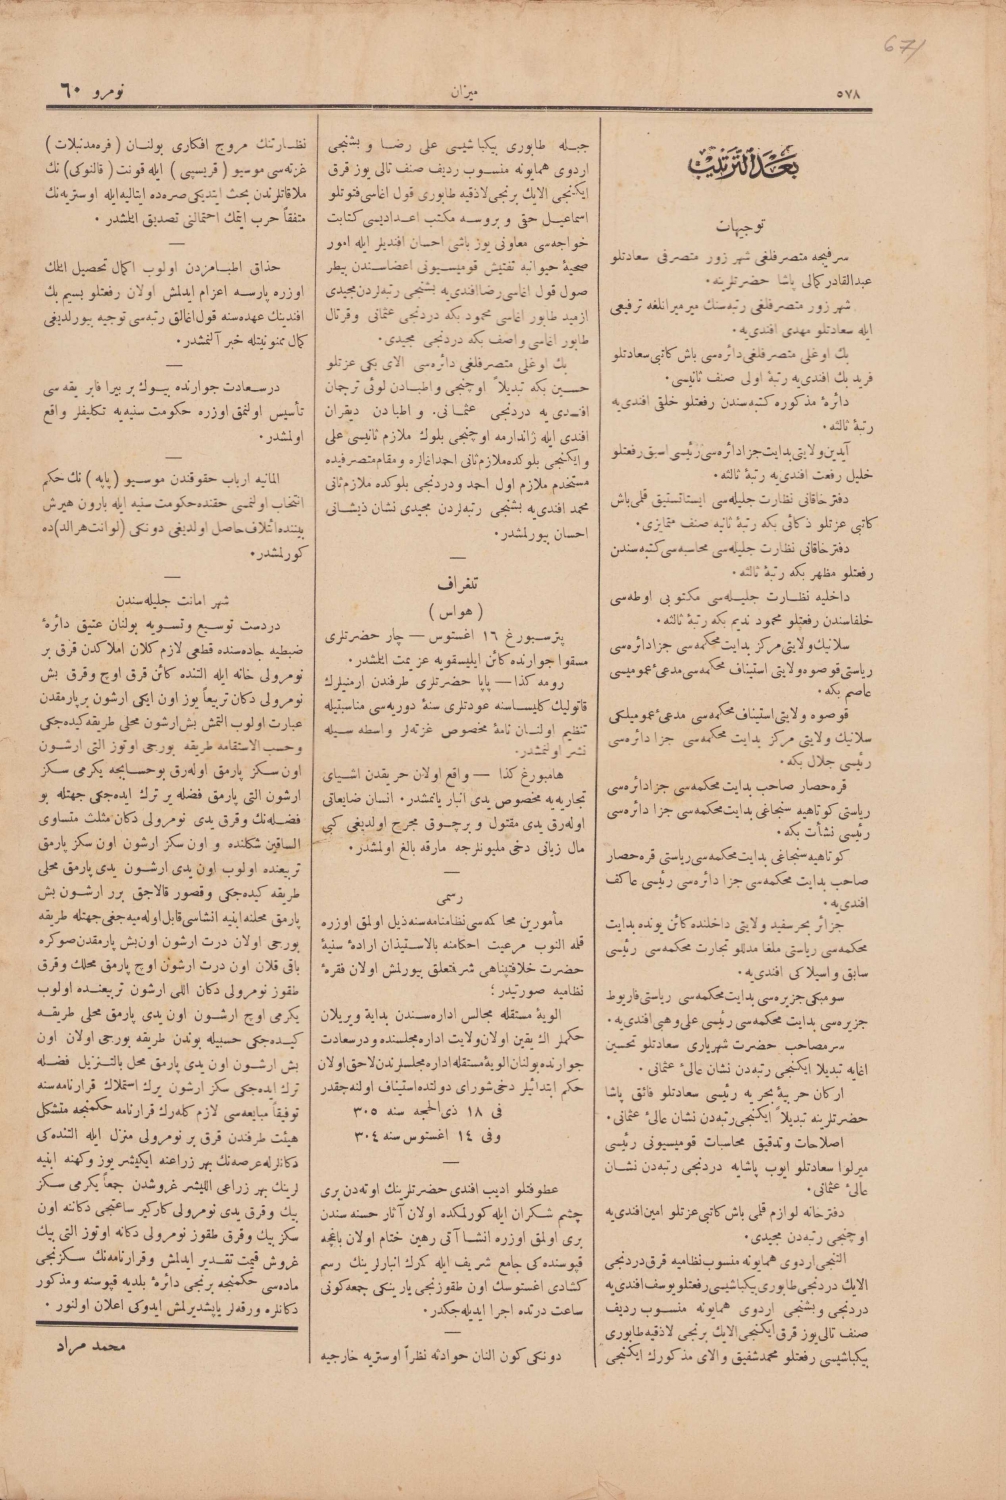 671
٥٧٨
ميزان
نومرو ٦٠
بعد الترتيب
توجيهات
سرفيجه متصرفلغى شهر زور متصرفى سعادتلو
عبدالقادر كمالى پاشا حضرتلرينه.
شهر زور متصرفلغى رتبه‌سنك ميرميرانلغه ترفيعى
ايله سعادتلو مهدى افندى‌يه.
بك اوغلى متصرفلغى دائره‌سى باش كاتبى سعادتلو
فريد بك افندى‌يه رتبۀ اولى صنف ثانيسى.
دائرۀ مذكوره كتبه‌سندن رفعتلو خلقى افندى‌يه
رتبۀ ثالثه.
آيدين ولايتى بدايت جزا دائره‌سى رئيسى اسبق رفعتلو
خليل رفعت افندى‌يه رتبۀ ثالثه.
دفتر خاقانى نظارت جليله‌سى ايستاتستيق قلمى باش
كاتبى عزتلو ذكائى بكه رتبۀ ثانيه صنف متمايزى.
دفتر خاقانى نظارت جليله‌سى محاسبه‌سى كتبه‌سندن
رفعتلو مظهر بكه رتبۀ ثالثه.
داخليه نظارت جليله‌سى مكتوبى اوطه‌سى
خلفاسندن رفعتلو محمود نديم بكه رتبۀ ثالثه.
سلانيك ولايتى مركز بدايت محكمه‌سى جزا دائره‌سى
رياستى قوصوه ولايتى استيناف محكمه‌سى مدعئ عموميسى
عاصم بكه.
قوصوه ولايتى استيناف محكمه‌سى مدعئ عموميلكى
سلانيك ولايتى مركز بدايت محكمه‌سى جزا دائره‌سى
رئيسى جلال بكه.
قره‌حصار صاحب بدايت محكمه‌سى جزا دائره‌سى
رياستى كوتاهيه سنجاغى بدايت محكمه‌سى جزا دائره‌سى
رئيسى نشأت بكه.
كوتاهيه سنجاغى بدايت محكمه‌سى رياستى قره‌حصار
صاحب بدايت محكمه‌سى جزا دائره‌سى رئيسى عاكف
افندى‌يه.
جزائر بحر سفيد ولايتى داخلنده كائن يونده بدايت
محكمه‌سى رياستى ملغا مدللو تجارت محكمه‌سى رئيسى
سابق واسيلاكى افندى‌يه.
سومبكى جزيره‌سى بدايت محكمه‌سى رياستى قاريوط
جزيره‌سى بدايت محكمه‌سى رئيسى على وهبى افندى‌يه.
سرمصاحب حضرت شهريارى سعادتلو تحسين
اغايه تبديلا ايكنجى رتبه‌دن نشان عالئ عثمانى.
اركان حربيۀ بحريه رئيسى سعادتلو فائق پاشا
حضرتلرينه تبديلاً ايكنجى رتبه‌دن نشان عالئ عثمانى.
اصلاحات وتدقيق محاسبات قوميسيونى رئيسى
ميرلوا سعادتلو ايوب پاشايه دردنجى رتبه‌دن نشان
عالئ عثمانى.
دفترخانه لوازم قلمى باش كاتبى عزتلو امين افندى‌يه
اوچنجى رتبه‌دن مجيدى.
التنجى اردوى همايونه منسوب نظاميه قرق دردنجى
الايك دردنجى طابورى بيكباشيسى رفعتلو يوسف افندى‌يه
دردنجى وبشنجى اردوى همايونه منسوب رديف
صنف تالى يوز قرق ايكنجى الايك برنجى لاذقيه طابورى
بيكباشيسى رفعتلو محمد شفيق والاى مذكورك ايكنجى
جبله طابورى بيكباشيسى على رضا و بشنجى
اردوى همايونه منسوب رديف صنف تالى يوز قرق
ايكنجى الايك برنجى لاذقيه طابورى قول اغاسى فتوتلو
اسماعيل حقى و بروسه مكتب اعداديسى كتابت
خواجه‌سى معاونى يوز باشى احسان افنديلر ايله امور
صحيۀ حيوانيه تفتيش قوميسيونى اعضاسندن بيطر
صول قول اغاسى رضا افندى‌يه بشنجى رتبه‌لردن مجيدى
ازميد طابور اغاسى محمود بكه دردنجى عثمانى وقرتال
طابور اغاسى واصف بكه دردنجى مجيدى.
بك اوغلى متصرفلغى دائره‌سى الاى بكى عزتلو
حسين بكه تبديلاً اوچنجى واطبادن لوئى ترجمان
افندى‌يه دردنجى عثمانى. و اطبادن ديقران
افندى ايله ژاندارمه اوچنجى بلوك ملازم ثانيسى على
وايكنجى بلوكده ملازم ثانى احمد اغالره و مقام متصرفيده
مستخدم ملازم اول احمد ودردنجى بلوكده ملازم ثانى
محمد افندى‌يه بشنجى رتبه‌لردن مجيدى نشان ذيشانى
احسان بيورلمشدر.
تلغراف
(هواس)
پترسبورغ ١٦ اغستوس — چار حضرتلرى
مسقوا جوارنده كائن ايليسقويه عزيمت ايتمشدر.
رومه كذا — پاپا حضرتلرى طرفندن ارمنيلرك
قاتوليك كليساسنه عودتلرى سنۀ دوريه‌سى مناسبتيله
تنظيم اولنان نامۀ مخصوص غزته‌لر واسطه سيله
نشر اولنمشدر.
هامبورغ كذا — واقع اولان حريقدن اشياى
تجاريه‌يه مخصوص يدى انبار يانمشدر. انسان ضايعاتى
اوله‌رق يدى مقتول و برچوق مجرح اولديغى كبى
مال زيانى دخى مليونلرجه مارقه بالغ اولمشدر.
رسمى
مأمورين محاكمه‌سى نظامنامه‌سنه ذيل اولمق اوزره
قلمه النوب مرعيت احكامنه بالاستيذان ارادۀ سنيۀ
حضرت خلافتپناهى شرفتعلق بيورلمش اولان فقرۀ
نظاميه صورتيدر؛
الويۀ مستقله مجالس اداره‌سندن بدايةً ويريلان
حكملر اك يقين اولان ولايت اداره مجلسنده و درسعادت
جوارنده بولنان الويۀ مستقله اداره مجلسلرندن لاحق اولان
حكم ابتدائيلر دخى شوراى دولتده استيناف اولنه‌جقدر
فى ١٨ ذى الحجه سنه ٣٠٥
وفى ١٤ اغستوس سنه ٣٠٤
عطوفتلو اديب افندى حضرتلرينك اوته‌دن برى
چشم شكران ايله كورلمكده اولان آثار حسنه سندن
برى اولمق اوزره انشاآتى رهين ختام اولان باغچه
قپوسنده‌كى جامع شريف ايله كمرك انبارلرينك رسم
كشادى اغستوسك اون طقوزنجى يارينكى جمعه كونى
ساعت درتده اجرا ايديله‌جكدر.
دونكى كون النان حوادثه نظراً اوستريه خارجيه
نظارتنك مروج افكارى بولنان (فره‌مدنبلات)
غزته‌سى موسيو (قريسپى) ايله قونت (قالنوكى) نك
ملاقاتلرندن بحث ايتديكى صره‌ده ايتاليه ايله اوستريه‌نك
متفقاً حرب ايتمك احتمالنى تصديق ايتمشدر.
حذاق اطبامزدن اولوب اكمال تحصيل ايتمك
اوزره پارسه اعزام ايدلمش اولان رفعتلو بسيم بك
افندينك عهده‌سنه قول اغالق رتبه‌سى توجيه بيورلديغى
كمال ممنونيتله خبر آلنمشدر.
درسعادت جوارنده بيوك بر بيرا فابريقه سى
تأسيس اولنمق اوزره حكومت سنيه‌يه تكليفلر واقع
اولمشدر.
المانيه ارباب حقوقندن موسيو (پاپه) نك حكم
انتخاب اولنمسى حقنده حكومت سنيه ايله بارون هيرش
بيننده ائتلاف حاصل اولديغى دونكى (لوانت هرالد)ده
كورلمشدر.
شهر امانت جليله‌سندن
دردست توسيع وتسويه بولنان عتيق دائرۀ
ضبطيه جاده‌سنده قطعى لازم كلان املاكدن قرق بر
نومرولى خانه ايله التنده كائن قرق اوچ وقرق بش
نومرولى دكان تربيعاً يوز اون ايكى ارشون بر پارمقدن
عبارت اولوب التمش بش ارشون محلى طريقه كيده‌جكى
وحسب الاستقامه طريقه يورجى اوتوز التى ارشون
اون سكز پارمق اوله‌رق بوحسابجه يكرمى سكز
ارشون التى پارمق فضله ير ترك ايده‌جكى جهتله بو
فضله‌نك وقرق يدى نومرولى دكان مثلث متساوى
الساقين شكلنده و اون سكز ارشون اون سكز پارمق
تربيعنده اولوب اون يدى ارشون يدى پارمق محلى
طريقه كيده‌جكى وقصور قالاجق برر ارشون بش
پارمق محلنه ابنيه انشاسى قابل اوله‌ميه‌جغى جهتله طريقه
يورجى اولان درت ارشون اون بش پارمقدن صوكره
باقى قلان اون درت ارشون اوچ پارمق محلك وقرق
طقوز نومرولى دكان اللى ارشون تربيعنده اولوب
يكرمى اوچ ارشون اون يدى پارمق محلى طريقه
كيده‌جكى حسبيله بوندن طريقه يورجى اولان اون
بش ارشون اون يدى پارمق محل بالتنزيل فضله
ترك ايده‌جكى سكز ارشون يرك استملاك قرارنامه‌سنه
توفيقاً مبايعه‌سى لازم كلمه‌رك قرارنامه حكمنجه متشكل
هيئت طرفندن قرق بر نومرولى منزل ايله التنده‌كى
دكانلرله عرصه‌نك بهر زراعنه ايكيشر يوز وكهنه ابنيه
لرينك بهر زراعى الليشر غروشدن جمعاً يكرمى سكز
بيك وقرق يدى نومرولى كاركير ساعتجى دكاننه اون
سكز بيك وقرق طقوز نومرولى دكانه اوتوز التى بيك
غروش قيمت تقدير ايدلمش وقرارنامه‌نك سكزنجى
ماده‌سى حكمنجه برنجى دائرۀ بلديه قپوسنه ومذكور
دكانلره ورقه‌لر ياپشديرلمش ايدوكى اعلان اولنور.
محمد مراد